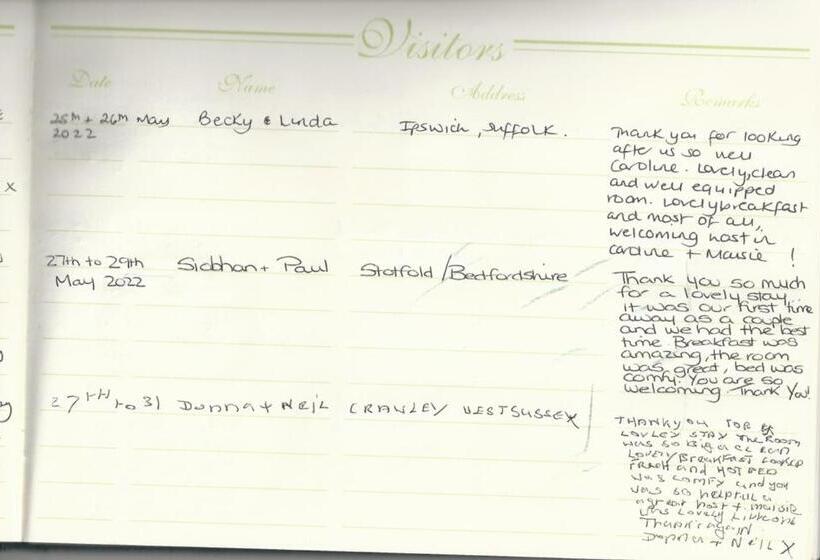 Visitors
Date Name Address Remarks
25th + 26th May Becky & Linda Ipswich, Suffolk.
2022
Thank you for looking
after us so well
Caroline. Lovely, clean
and well equipped
room. Lovely breakfast
and most of all,
welcoming host in
Caroline + Maisie !
27th to 29th Siobhan + Paul Stotfold / Bedfordshire
May 2022
Thank you so much
for a lovely stay..
it was our first time
away as a couple
and we had the best
time. Breakfast was
amazing, the room
was great, bed was
comfy. You are so
welcoming. Thank You!
27TH to 31 Donna + Neil CRAWLEY WEST SUSSEX
THANK YOU FOR
LOVLEY STAY THE ROOM
was so Big a CLEAN
LOVELY BreakFAST COOKED
FRESH and HOT BED
was comfy and you
was so helpful a
agreat host + maisie
was Lovely
Thank again
Donna + Neil X